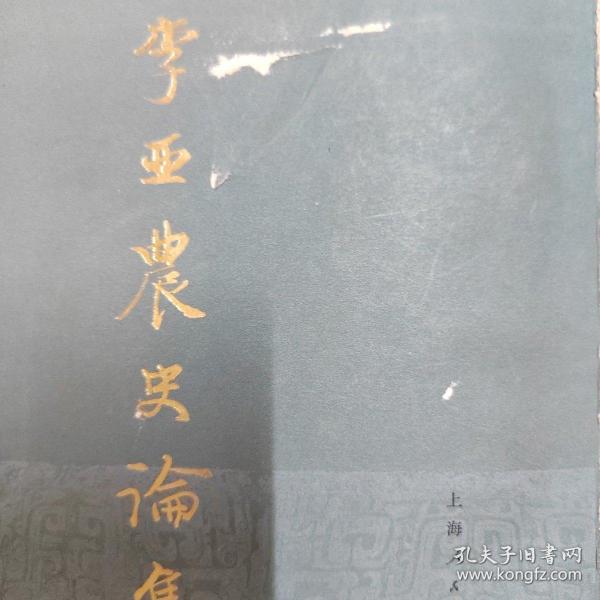 李亚農史論集
上海人
孔夫子旧書网
www.kongfz.com